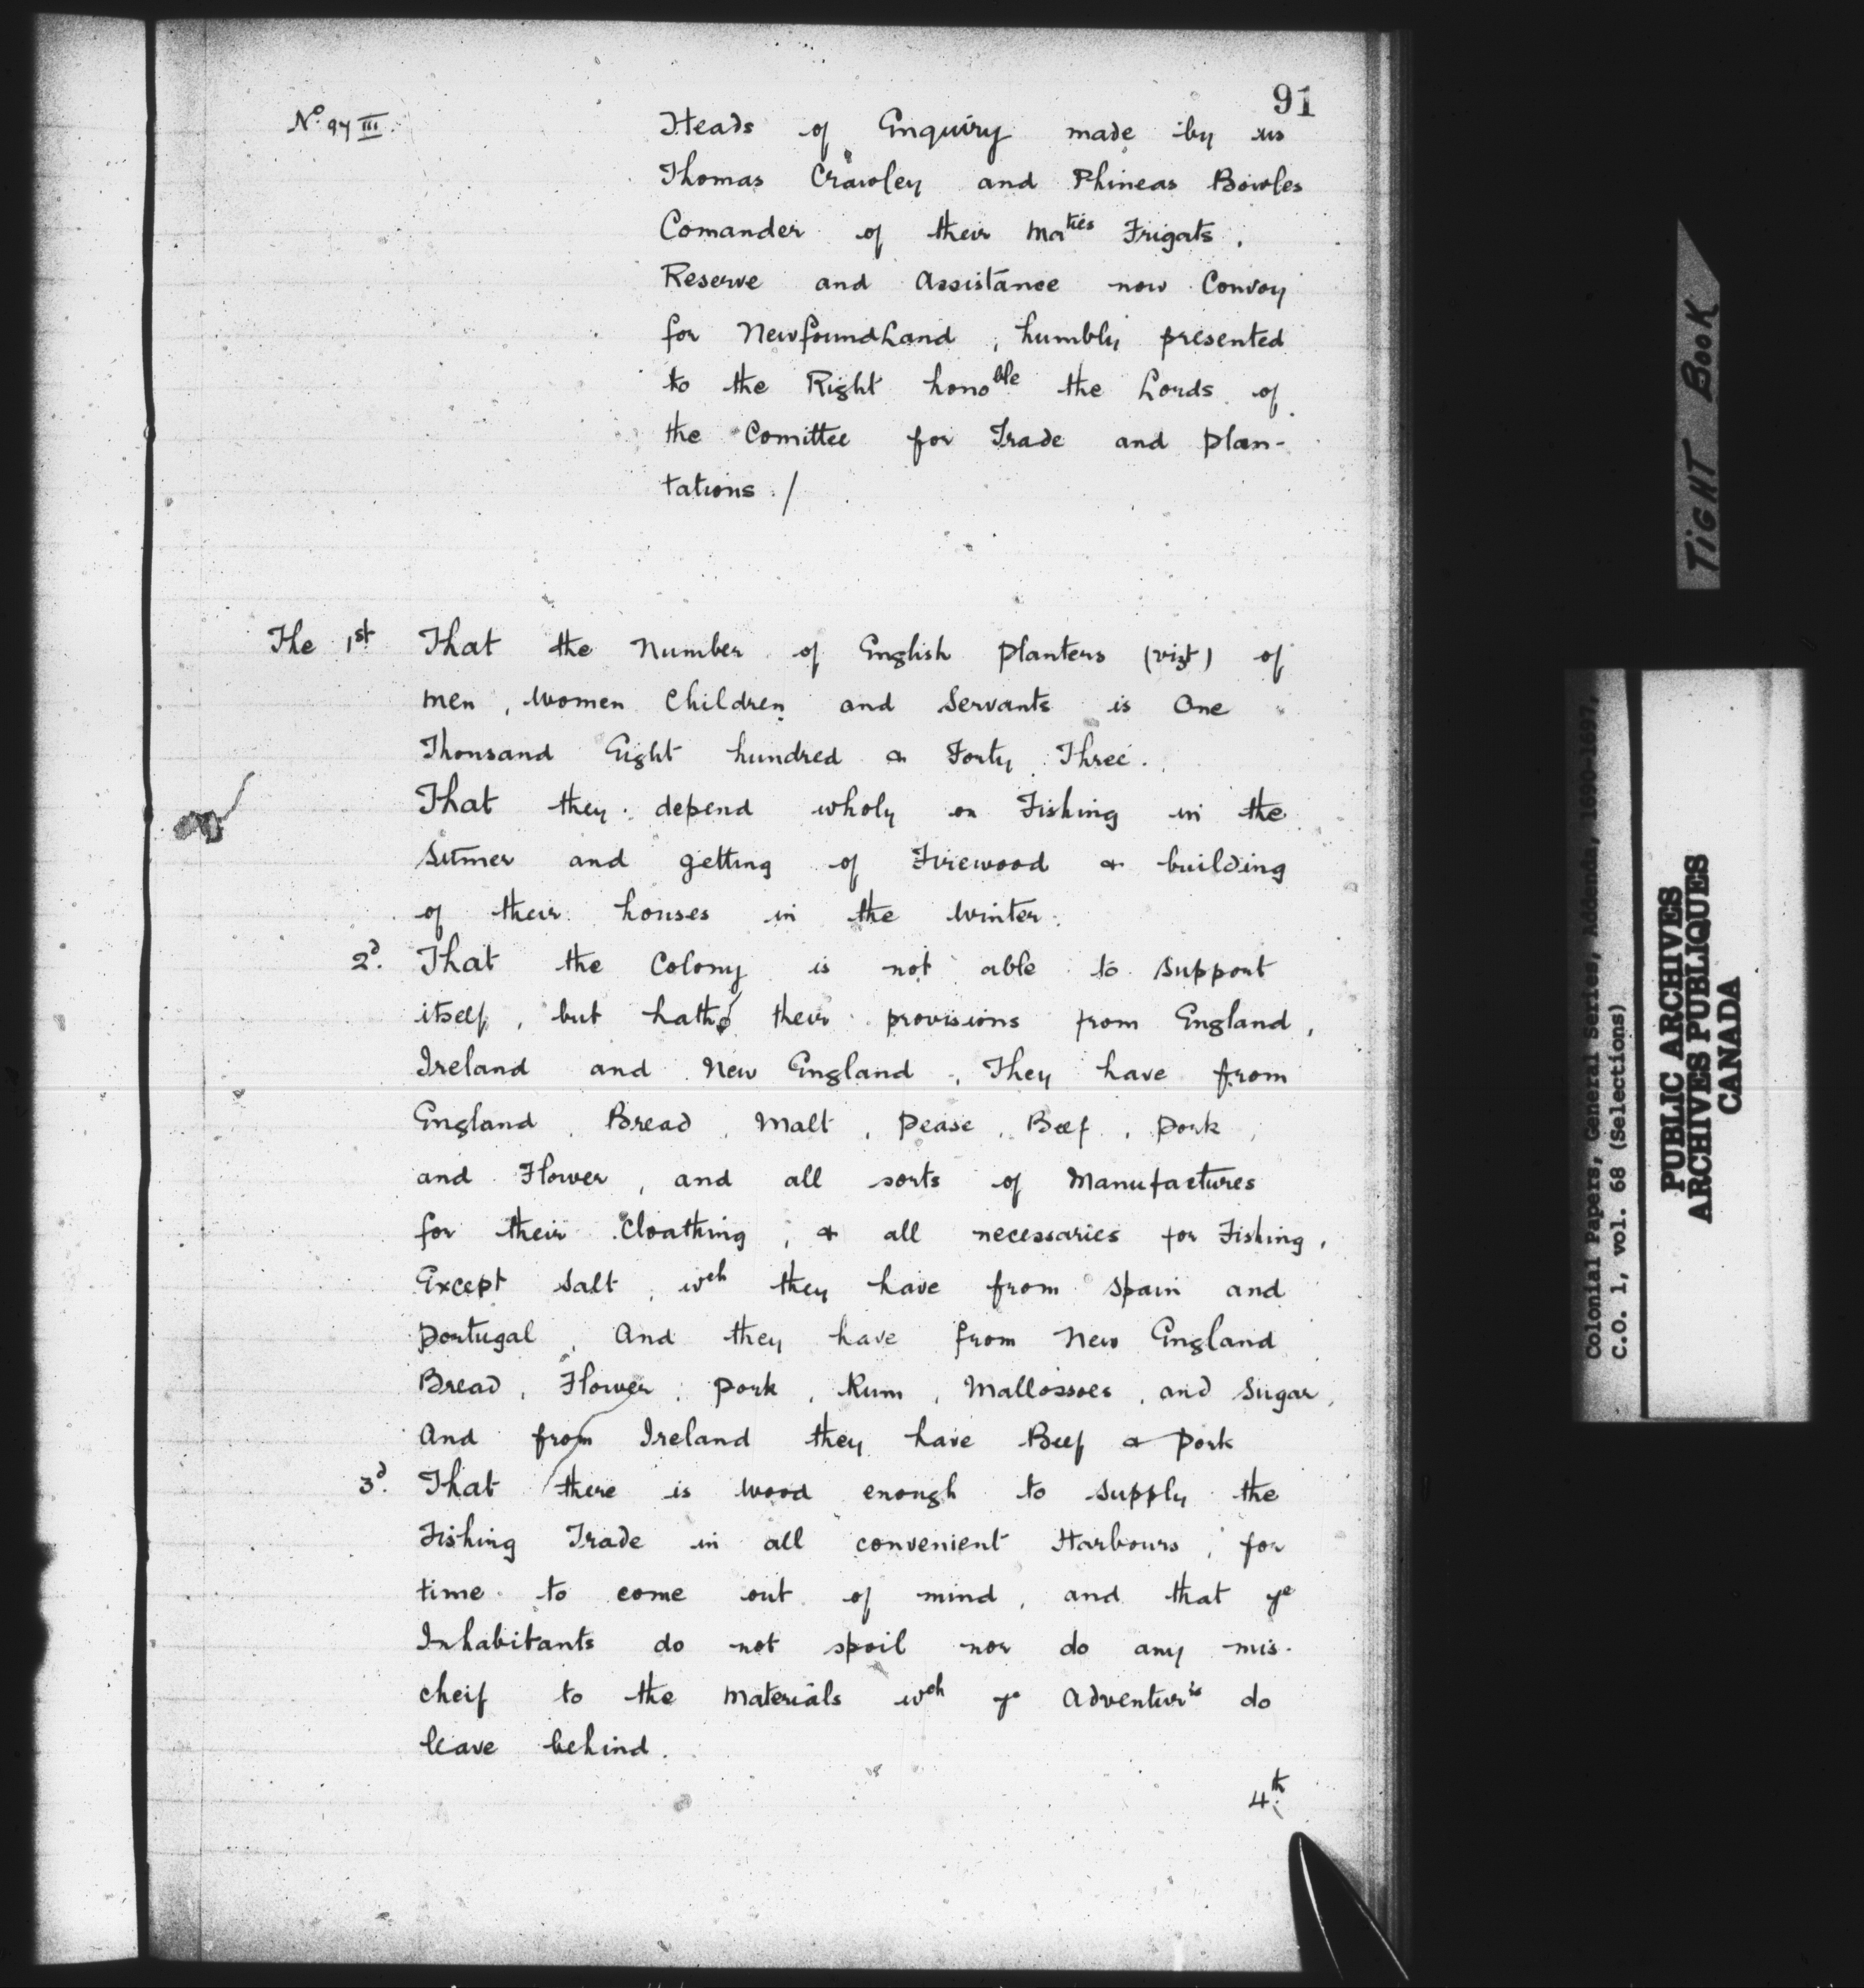 91
No. 97 III.
Heads of Enquiry made by us
Thomas Crawley and Phineas Bowles
Comander of their Maties Frigats,
Reserve and Assistance now Convoy
for NewfoundLand, humbly presented
to the Right honoble the Lords of
the Comittee for Trade and Plan-
tations./
The 1st That the Number of English Planters (vizt) of
men, women Children and Servants is One
Thousand Eight hundred & Forty Three.
That they depend wholy on Fishing in the
Sūmer and getting of Firewood & building
of their houses in the Winter.
2d. That the Colony is not able to support
itself, but hath their provisions from England,
Ireland and New England, They have from
England, Bread, Malt, Pease, Beef, Pork,
and Flower, and all sorts of Manufactures
for their Cloathing, & all necessaries for Fishing,
Except Salt, wch they have from Spain and
Portugal, And they have from New England
Bread, Flower, Pork, Rum, Mallossoes, and Sugar,
And from Ireland they have Beef & Pork
3d. That there is wood enough to supply the
Fishing Trade in all convenient Harbours, for
time to come out of mind, and that ye
Inhabitants do not spoil nor do any mis-
cheif to the Materials wch ye Adventurrs do
leave behind.
4th.
TIGHT BOOK
Colonial Papers, General Series, Addenda, 1690-1697,
C.O. 1, vol. 68 (Selections)
PUBLIC ARCHIVES
ARCHIVES PUBLIQUES
CANADA